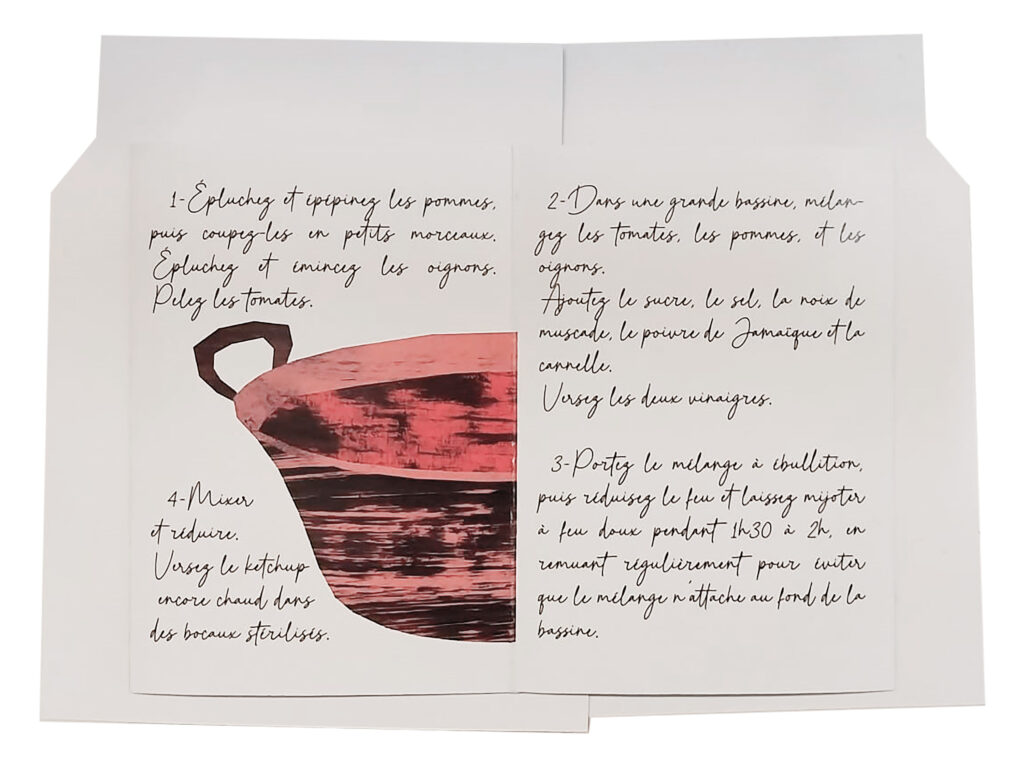 1-Épluchez et épépinez les pommes,
puis coupez-les en petits morceaux.
Épluchez et émincez les oignons.
Pelez les tomates.
2-Dans une grande bassine, mélan-
gez les tomates, les pommes, et les
oignons.
Ajoutez le sucre, le sel, la noix de
muscade, le poivre de Jamaïque et la
cannelle.
Versez les deux vinaigres.
3-Portez le mélange à ébullition,
puis réduisez le feu et laissez mijoter
à feu doux pendant 1h30 à 2h, en
remuant régulièrement pour éviter
que le mélange n'attache au fond de la
bassine.
4-Mixer
et réduire.
Versez le ketchup
encore chaud dans
des bocaux stérilisés.